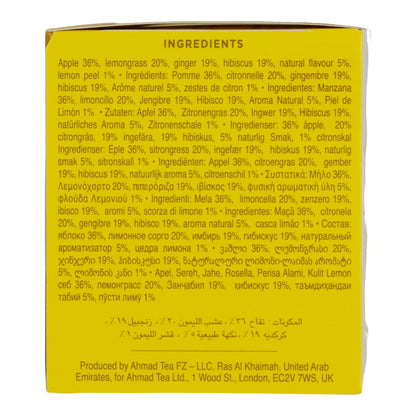 INGREDIENTS
Apple 36%, lemongrass 20%, ginger 19%, hibiscus 19%, natural flavour 5%,
lemon peel 1% • Ingrédients: Pomme 36%, citronnelle 20%, gingembre 19%,
hibiscus 19%, Arôme naturel 5%, zestes de citron 1% • Ingredientes: Manzana
36%, limoncillo 20%, Jengibre 19%, Hibisco 19%, Aroma Natural 5%, Piel de
Limón 1% • Zutaten: Apfel 36%, Zitronengras 20%, Ingwer 19%, Hibiskus 19%,
natürliches Aroma 5%, Zitronenschale 1% • Ingredienser: 36% äpple, 20%
citrongräs, 19% ingefära, 19% hibiskus, 5% naturlig Smak, 1% citronskal
Ingredienser: Eple 36%, sitrongress 20%, ingefær 19%, hibiskus 19%, naturlig
smak 5%, sitronskall 1% • Ingrediënten: Appel 36%, citroengras 20%, gember
19%, hibiscus 19%, natuurlijk aroma 5%, citroenschil 1% • Συστατικά: Μήλο 36%,
Λεμονόχορτο 20%, πιπερόριζα 19%, ιβίσκος 19%, φυσική αρωματική ύλη 5%,
φλούδα Λεμονιού 1% • Ingredienti: Mela 36%, limoncella 20%, zenzero 19%,
ibisco 19%, aromi 5%, scorza di limone 1% • Ingredientes: Maçã 36%, citronela
20%, gengibre 19%, hibisco 19%, aroma natural 5%, casca limão 1% • Состав:
яблоко 36%, лимонное сорго 20%, имбирь 19%, гибискус 19%, натуральный
ароматизатор 5%, цедра лимона 1% • ვაშლი 36%, ლემონგრასი 20%,
ჯინჯერი 19%, ჰიბისკუსი 19%, ნატურალური ლიმონი-ლაიმის არომატი
5%, ლიმონის კანი 1% • Apel, Sereh, Jahe, Rosella, Perisa Alami, Kulit Lemon
себ 36%, лемонграсс 20%, Занҷабил 19%, ҳибискус 19%, таъмдиҳандаи
табиӣ 5%, пӯсти лиму 1%
المكونات: تفاح ٣٦٪، عشب الليمون ٢٠٪، زنجبيل ١٩٪،
كركديه ١٩٪، نكهة طبيعية ٥٪، قشر الليمون ١٪
Produced by Ahmad Tea FZ – LLC, Ras Al Khaimah, United Arab
Emirates, for Ahmad Tea Ltd., 1 Wood St., London, EC2V 7WS, UK